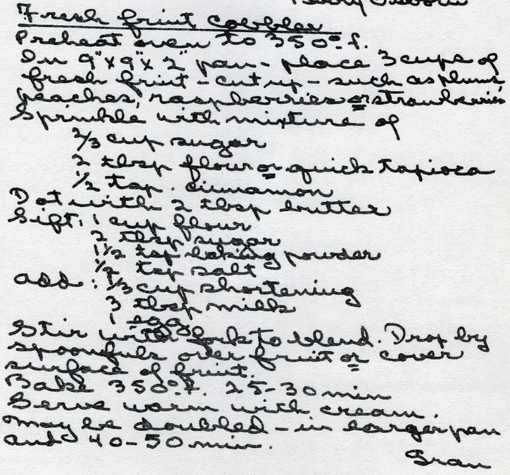 Fresh fruit cobbler
Preheat oven to 350° f.
In 9"x9"x2" pan - place 3 cups of
fresh fruit - cut up - such as plums,
peaches, raspberries or strawberries
Sprinkle with mixture of
2/3 cup sugar
2 tbsp flour or quick tapioca
1/2 tsp. cinnamon
Dot with 2 tbsp butter
Sift: 1 cup flour
2 tbsp sugar
1 1/2 tsp baking powder
1/2 tsp salt
add: 1/3 cup shortening
3 tbsp milk
1 egg
Stir with fork to blend. Drop by
spoonfuls over fruit or cover
surface of fruit.
Bake 350° f. 25-30 min
Serve warm with cream.
May be doubled - in larger pan
and 40-50 min.
Gran